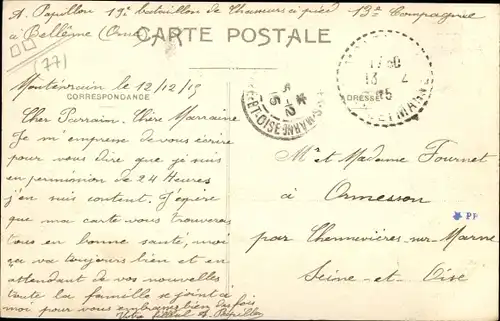 A. Papillon 19e bataillon de Chasseurs à pied 13e Compagnie
à Bellême (Orne) CARTE POSTALE
(77)
Montévrain le 12/12/15
CORRESPONDANCE
Cher Parrain. Chère Marraine
Je m'empresse de vous écrire
pour vous dire que je suis
en permission de 24 Heures
j'en suis content. J'espère
que ma carte vous trouverais
tous en bonne santé, moi
ça va toujours bien et en
attendant de vos nouvelles
toute la famille se joint à
moi pour vous embrasser bien des fois
Votre filleul A. Papillon
ET-OISE
MARNE
15
ADRESSE
13
15
Mr et Madame Fournet
à Ormesson
par Chennevières-sur Marne
Seine-et-Oise
PF